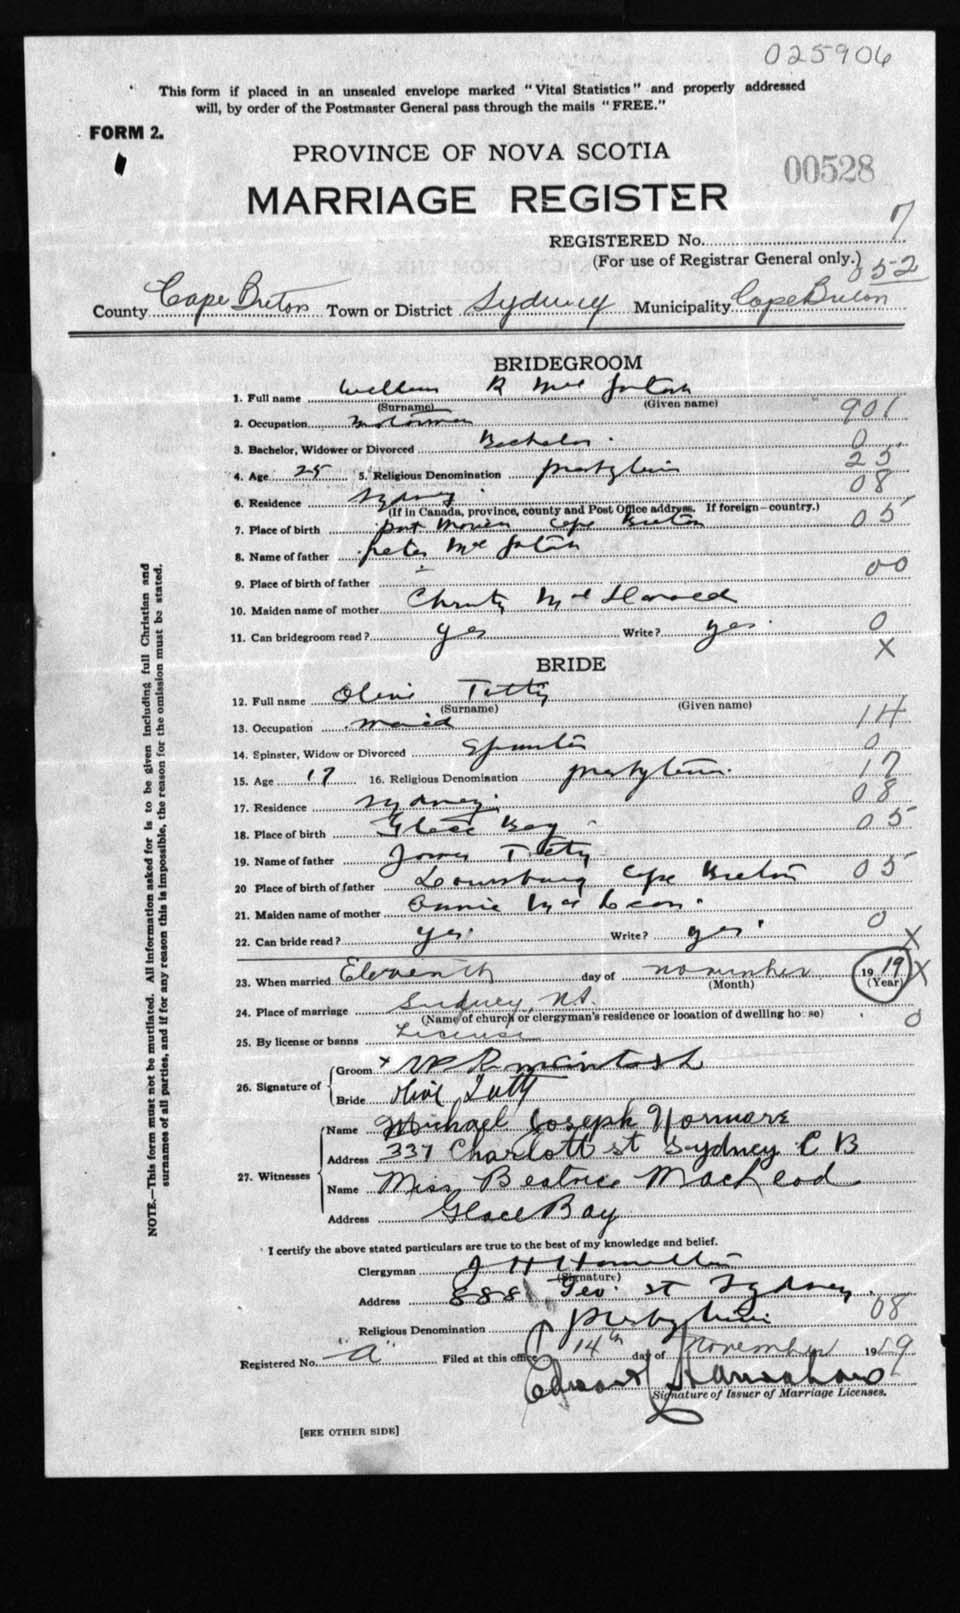 025906
This form if placed in an unsealed envelope marked "Vital Statistics" and properly addressed
will, by order of the Postmaster General pass through the mails "FREE."
FORM 2.
PROVINCE OF NOVA SCOTIA
00528
MARRIAGE REGISTER
REGISTERED No. 7
(For use of Registrar General only.)
052
County Cape Breton Town or District Sydney Municipality Cape Breton
BRIDEGROOM
1. Full name William R McIntosh
(Surname) (Given name)
2. Occupation Motorman 901
3. Bachelor, Widower or Divorced Bachelor. 0
4. Age 25 5. Religious Denomination presbyterian 25
6. Residence Sydney 08
(If in Canada, province, county and Post Office address. If foreign—country.)
7. Place of birth port Morien Cape Breton 05
8. Name of father peter McIntosh
9. Place of birth of father 00
10. Maiden name of mother Christy McDonald
11. Can bridegroom read? yes Write? yes. 0
X
BRIDE
12. Full name Olive Tutty
(Surname) (Given name)
13. Occupation maid 14
14. Spinster, Widow or Divorced Spinster 0
15. Age 17 16. Religious Denomination presbyterian. 17
17. Residence Sydney. 08
18. Place of birth Glace Bay 05
19. Name of father Tutty
20 Place of birth of father Louisburg Cape Breton 05
21. Maiden name of mother Annie McLean.
22. Can bride read? yes Write? yes 0
X
23. When married Eleventh day of November 1919 X
(Month) (Year)
24. Place of marriage Sydney, N.S.
(Name of church or clergyman's residence or location of dwelling house) 0
25. By license or banns License
26. Signature of Groom x W R McIntosh
Bride Olive Tutty
27. Witnesses Name Michael Joseph Normore
Address 337 Charlott st Sydney C B
Name Miss Beatrice MacLeod
Address Glace Bay
I certify the above stated particulars are true to the best of my knowledge and belief.
Clergyman J H Hamilton
(Signature)
Address 888 Geo. st Sydney.
Religious Denomination presbyterian 08
Registered No. "A" Filed at this office 14th day of November 1919
Edward
Signature of Issuer of Marriage Licenses.
[SEE OTHER SIDE]
NOTE.—This form must not be mutilated. All information asked for is to be given including full Christian and
surnames of all parties, and if for any reason this is impossible, the reason for the omission must be stated.